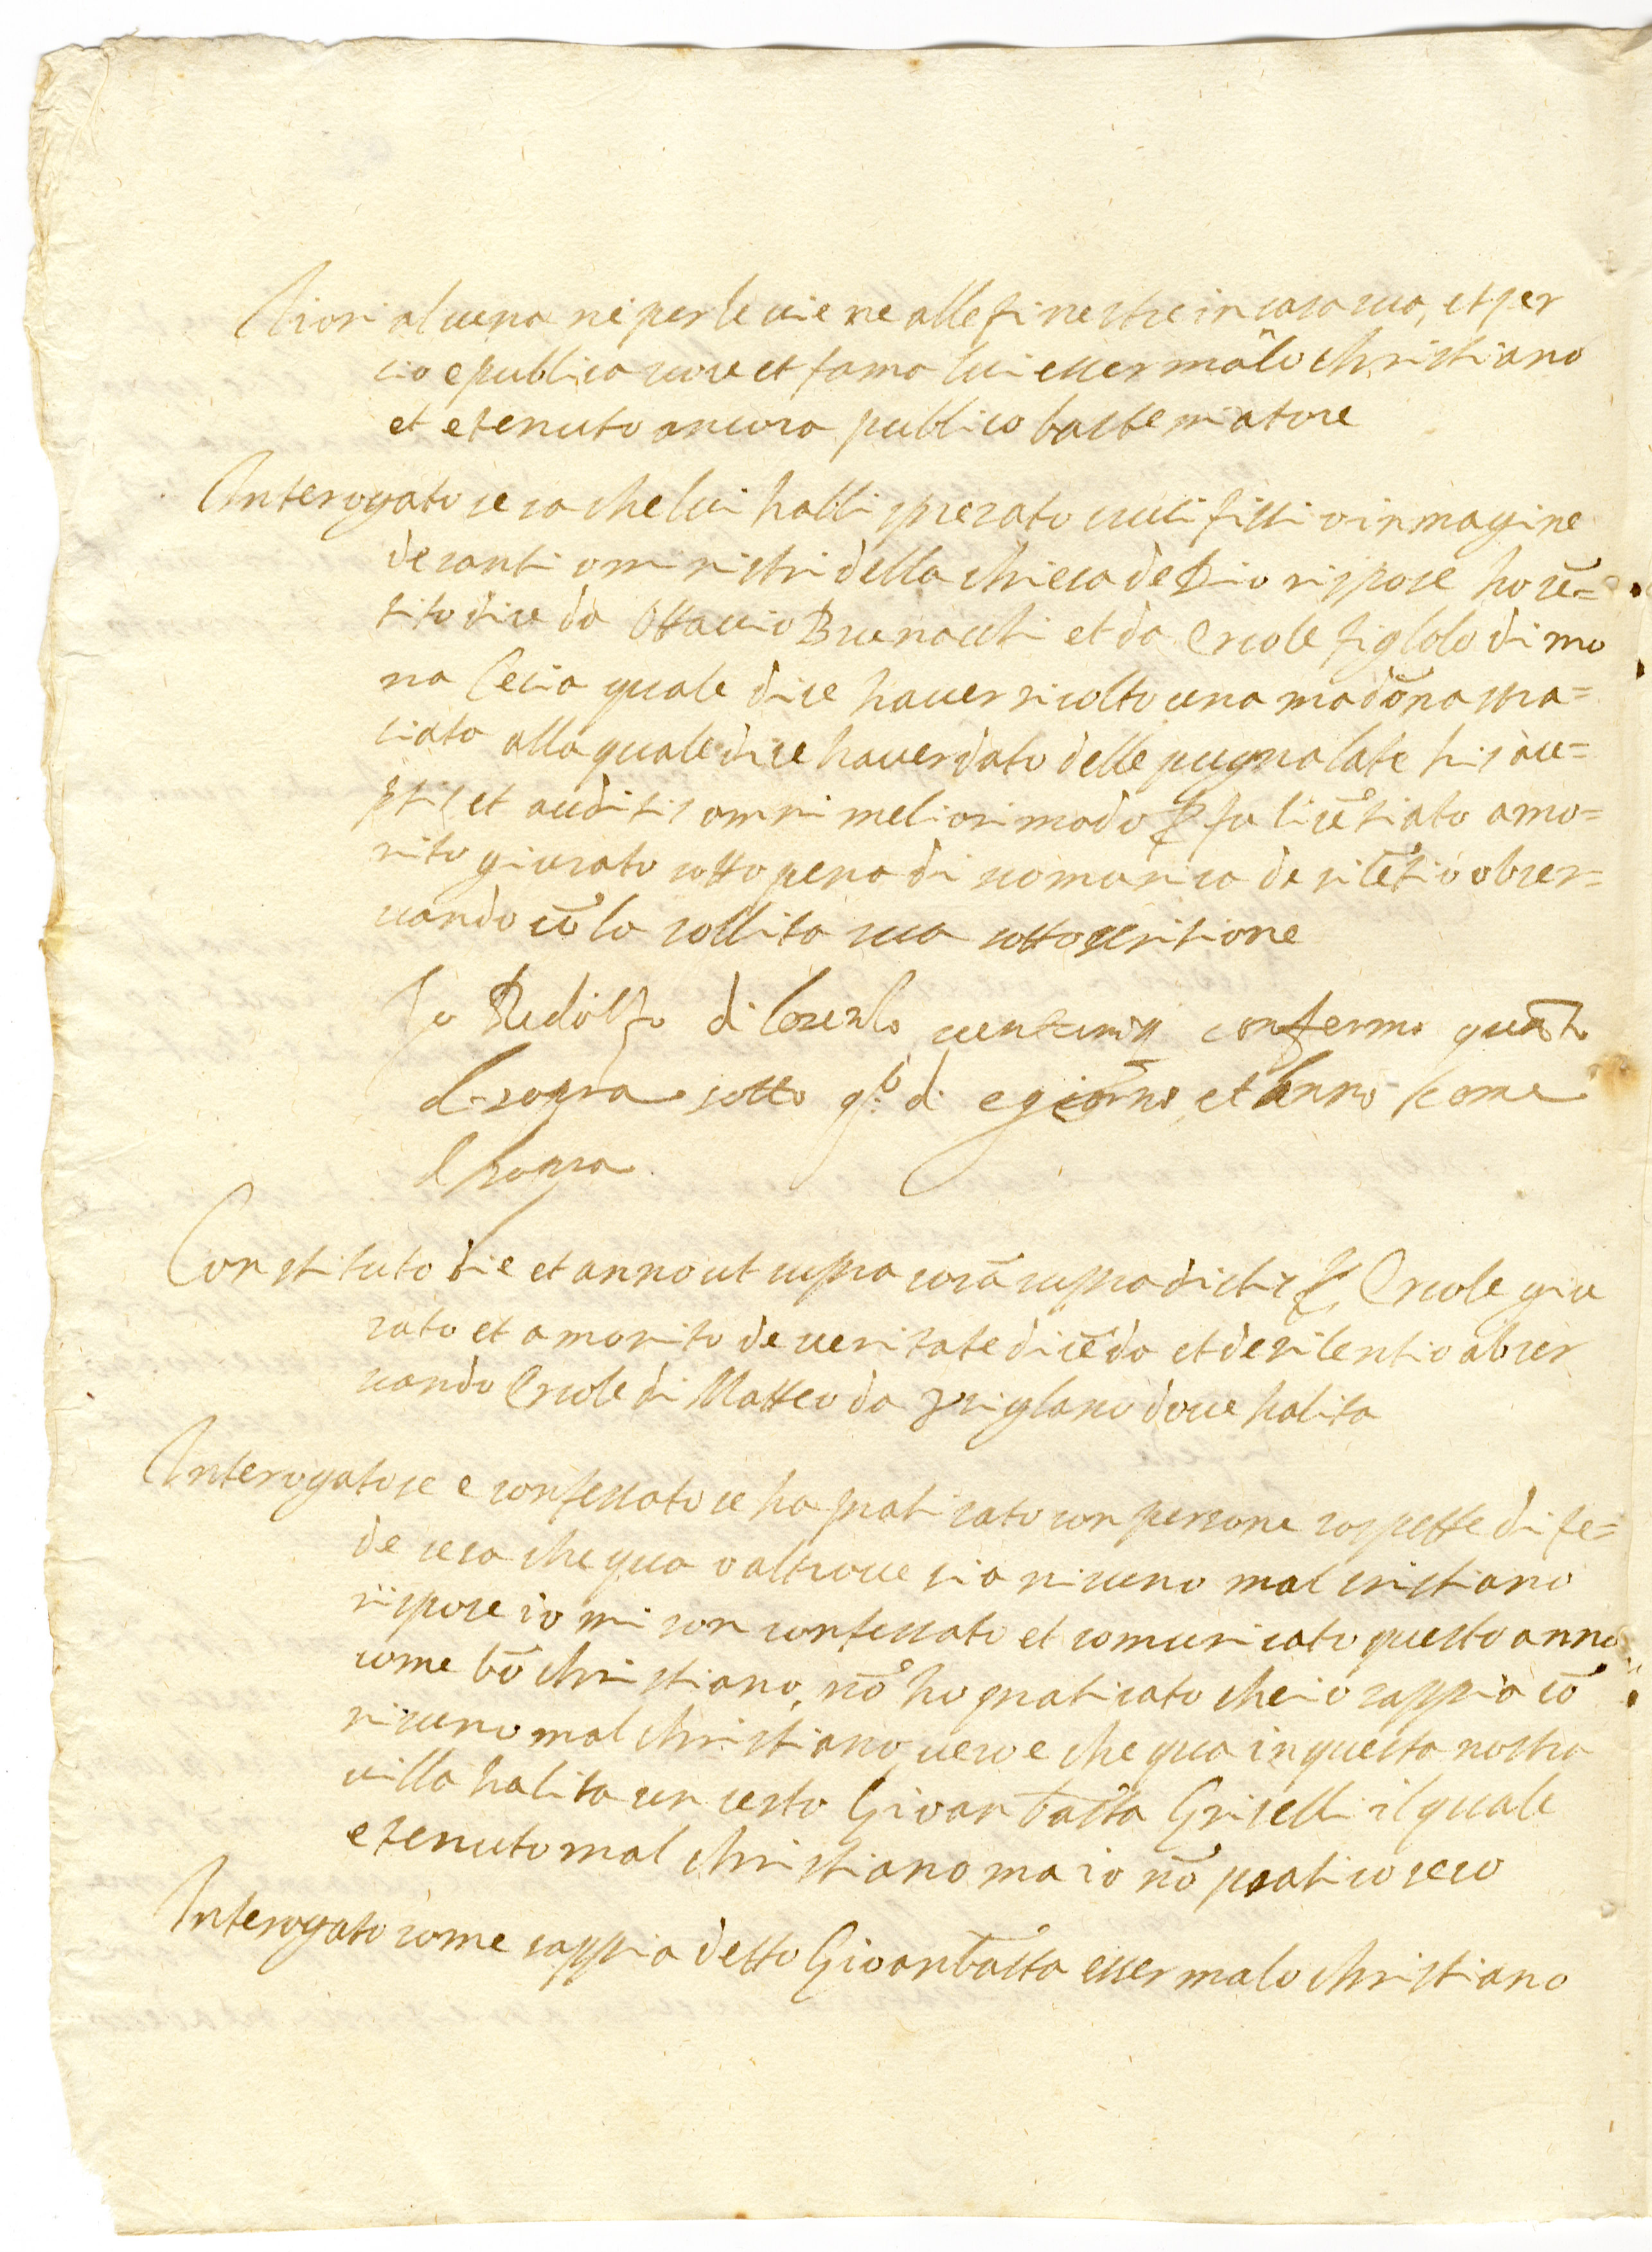 tioni alcuna ne per le vie ne alle finestre in casa sua, et per
cio e publica voce et fama lui esser malo christiano
et e tenuto ancora publico bastemiatore
Interogato se sa che lui habbi sprezato crucifissi o inmagine
de santi o ministri della chiesa de Dio rispose ho sē=
tito dire da Ottavio Brunacchi et da Ercole figlolo di mo
na Cecia quale dice haver ricolto una madōna stra=
ciata alla quale dice haver dato delle pugnalate his ace=
ptis et auditis omni meliori modo & fu licētiato amo=
nito giurato sotto pena di scomunica de silētio obser=
vando cō la sollita sua sottoscritione
Io Ridolfo di Lorenzo venturini confermo quāto
di sopra sotto q.o di e giorno et anno come
di sopra
Constituto die et anno ut supra corā supradictis & Ercole giu
rato et amonito de veritate dicēda et de silentio obser
vando Ercole di Matteo da Griglano dove habita
Interogato se e confessato se ha praticato con persone sospette di fe=
de se sa che qua o altrove sia nisuno mal cristiano
rispose io mi son confessato et comunicato questo anno
come bō christiano, nō ho praticato che io sappia cō
nisuno mal christiano, vero e che qua in questa nostra
villa habita un certo Giovanbatta Griselli il quale
e tenuto mal christiano ma io nō pratico seco
Interogato come sappia detto Giovanbatta esser malo christiano